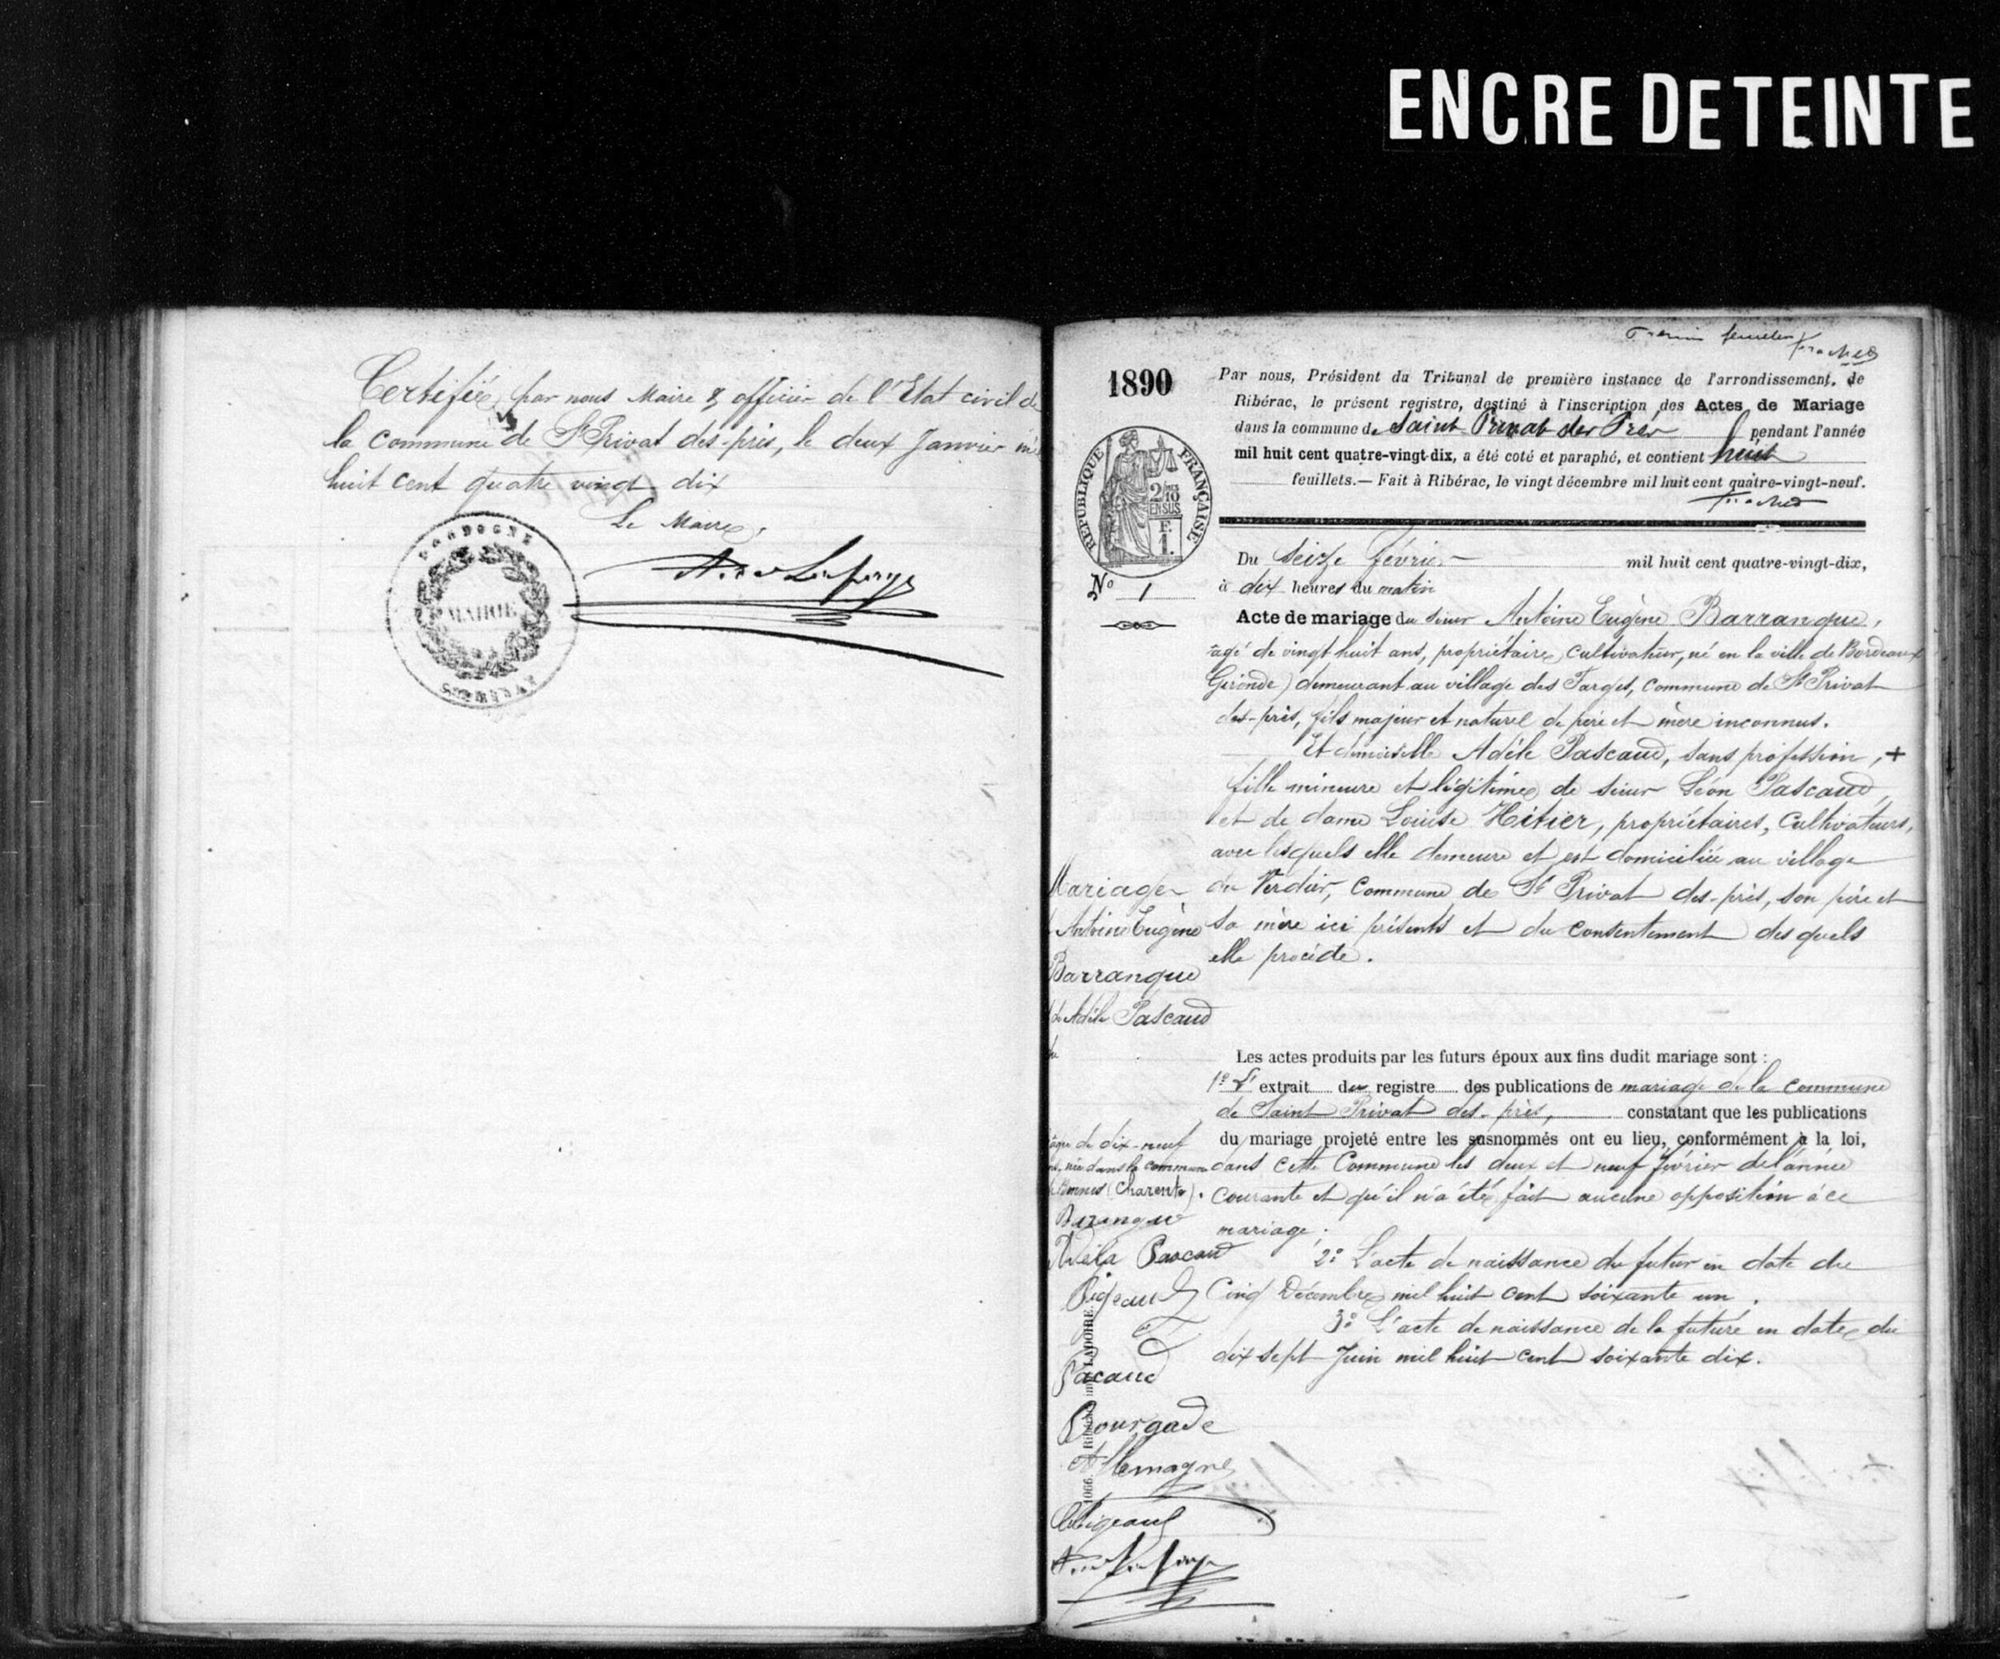 ENCRE DETEINTE
Certifié par nous Maire & officier de l'Etat civil de
la commune de St Privat des-près, le deux Janvier mil
huit cent quatre vingt dix
Le Maire,
DORDOGNE
MAIRIE
1890
Par nous, Président du Tribunal de première instance de l'arrondissement de
Ribérac, le présent registre, destiné à l'inscription des Actes de Mariage
dans la commune de Saint Privat des Près pendant l'année
mil huit cent quatre-vingt-dix, a été coté et paraphé, et contient huit
feuillets.— Fait à Ribérac, le vingt décembre mil huit cent quatre-vingt-neuf.
RÉPUBLIQUE FRANÇAISE
2/10 EN SUS
F.
1.
No 1
Du seize février mil huit cent quatre-vingt-dix,
à dix heures du matin
Acte de mariage du sieur Antoine Eugène Barranque,
âgé de vingt huit ans, propriétaire, cultivateur, né en la ville de Bordeaux
Gironde) demeurant au village des Farges, commune de St Privat
des-près, fils majeur et naturel de père et mère inconnus.
Et demoiselle Adèle Pascaud, sans profession, +
fille mineure et légitime de sieur Léon Pascaud,
et de dame Louise Hitier, propriétaires, cultivateurs,
avec lesquels elle demeure et est domiciliée au village
du Verdier, commune de St Privat des-près, son père et
sa mère ici présents et du consentement des quels
elle procède.
Mariage
Antoine Eugène
Barranque
Adèle Pascaud
Les actes produits par les futurs époux aux fins dudit mariage sont :
1º L' extrait du registre des publications de mariage de la commune
de Saint Privat des-près, constatant que les publications
du mariage projeté entre les susnommés ont eu lieu, conformément à la loi,
dans cette Commune les deux et neuf février de l'année
courante et qu'il n'a été fait aucune opposition à ce
mariage;
2º L'acte de naissance du futur en date du
Cinq Décembre mil huit cent soixante un.
3º L'acte de naissance de la future en date du
dix sept Juin mil huit cent soixante dix.
âgée de dix-neuf
née dans la commune
(Charente).
Baranque
Adèla Pascaud
Pigeaud
Pacaud
Bourgade
Allemagne
1066. Ribérac, imp. LADOIRE.